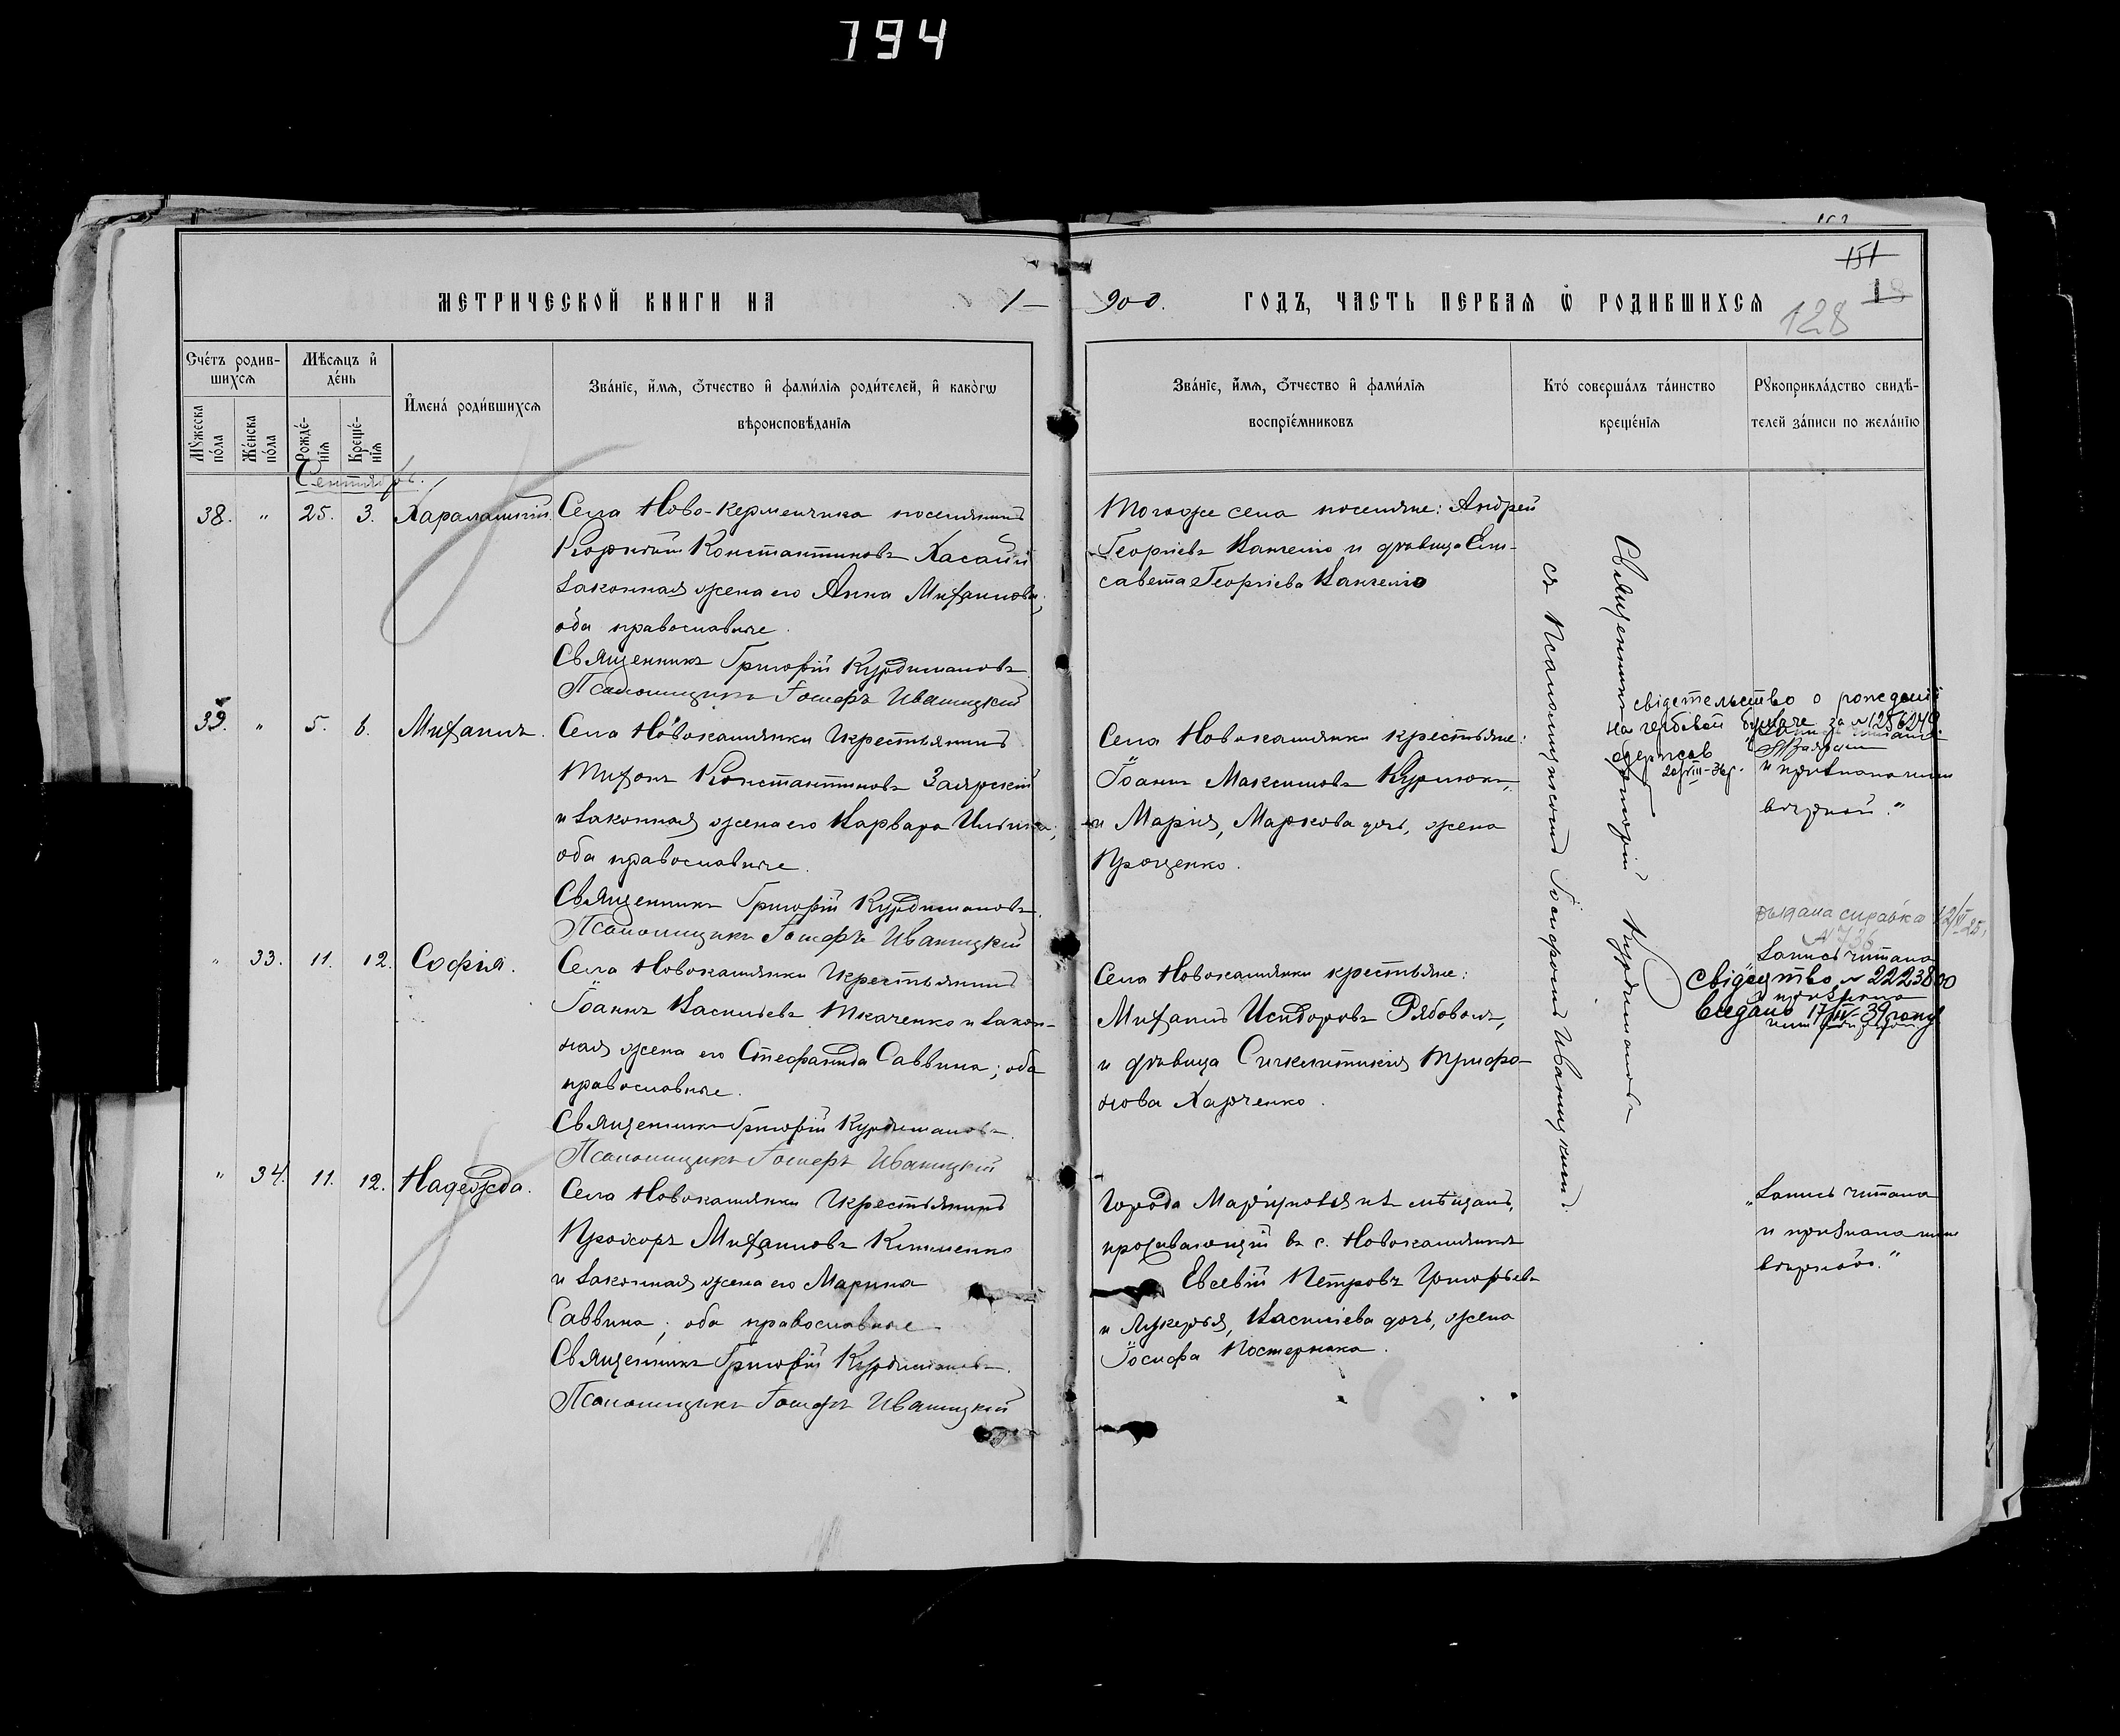 794
151
18
128
МЕТРИЧЕСКОЙ КНИГИ НА 1-
900. ГОДЪ, ЧАСТЬ ПЕРВАЯ Ѿ РОДИВШИХСЯ
Сче́тъ родив-
шихся
Мѣсяцъ и҆
де́нь
Мꙋжеска
по́ла
Же́нска
по́ла
Рожде́-
нїѧ
Креще́-
нїѧ
И҆мена́ роди́вшихсѧ
Зва́нїе, и҆́мѧ, ѻ҆́тчество и҆ фами́лїѧ роди́телей, и҆ како́гѡ
вѣроисповѣ́данїѧ
Зва́нїе, и҆́мѧ, ѻ҆́тчество и҆ фами́лїѧ
воспрїе́мниковъ
Кто́ соверша́лъ та́инство
креще́нїѧ
Рꙋкоприкла́дство свидѣ́-
телей за́писи по жела́нїю
Сентябрь.
38. " 25. 3. Харалампій
Села Ново-Керменчика поселянинъ
Константиновъ Хасай и
законная жена его Анна Михаилова,
оба православные.
Священникъ Григорій Курдимановъ
Псаломщикъ Іосифъ Иваницкій
Тогоже села поселяне: Андрей
Георгіевъ и дѣвица Ели-
савета Георгіева
39. " 5. 6. Михаилъ.
Села Новокаменки крестьянинъ
Тихонъ Константиновъ Заярский
и законная жена его Варвара Ильина;
оба православные.
Священникъ Григорій Курдимановъ.
Псаломщикъ Іосифъ Иваницкій
Села Новокаменки крестьяне:
Іоаннъ Максимовъ
и Марія, Маркова дочь, жена
Проценко.
свідетельство о рождении
на гербовой бумаге за № 1256240
одержав
20/VIII-36г.
и признана нами
вѣрной."
" 33. 11. 12. Софія.
Села Новокаменки крестьянинъ
Іоаннъ Васильевъ Ткаченко и закон-
ная жена его Стефанида Саввина; оба
православные.
Священникъ Григорій Курдимановъ.
Псаломщикъ Іосифъ Иваницкій
Села Новокаменки крестьяне:
Михаилъ Исидоровъ Рябоволъ,
и дѣвица Синклитикія Трифо-
нова Харченко.
выдана справка 12/VI 25,
№ 736
"Запись читана
Свідоцтво № 2223800
и признана
Видано 17/IV-39 року
" 34. 11. 12. Надежда.
Села Новокаменки крестьянинъ
Прохоръ Михаиловъ Клименко
и законная жена его Марина
Саввина; оба православные
Священникъ Григорій Курдимановъ.
Псаломщикъ Іосифъ Иваницкій
Города Маріуполя мѣщанъ,
проживающій въ с. Новокаменкѣ
Евсевій Петровъ Григорьевъ
и Лукерья, Васильева дочь, жена
Іосифа Постернака.
"Запись читана
и признана нами
вѣрною."
Священникъ Григорій Курдимановъ
съ Псаломщикомъ Іосифомъ Иваницкимъ.